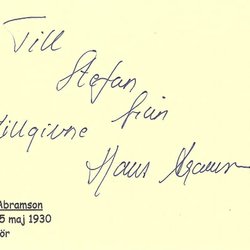 Till
Stefan
från
tillgivne
Hans Abramson
Abramson
5 maj 1930
ör